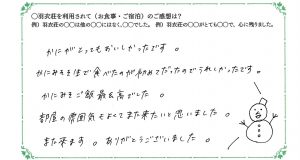 ○羽衣荘を利用されて（お食事・ご宿泊）のご感想は？
例）羽衣荘の○○は他の○○にはなく、○○でした。 例）羽衣荘の○○がとても○○で、心に残りました。
かにがとってもおいしかったです。
かにみそを生で食べたのが初めてだったのでうれしかったです。
かにみそご飯最高でした。
部屋の雰囲気もよくてまた来たいと思いました。
また来ます。ありがとうございました。